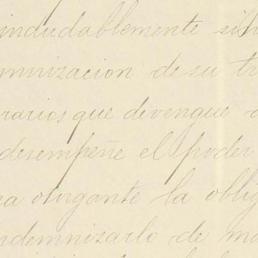 indudablemente
mnizacion de su tr
rarios que devengue
desempeñe el poder
a otorgante la oblig
ndemnizarlo de ma